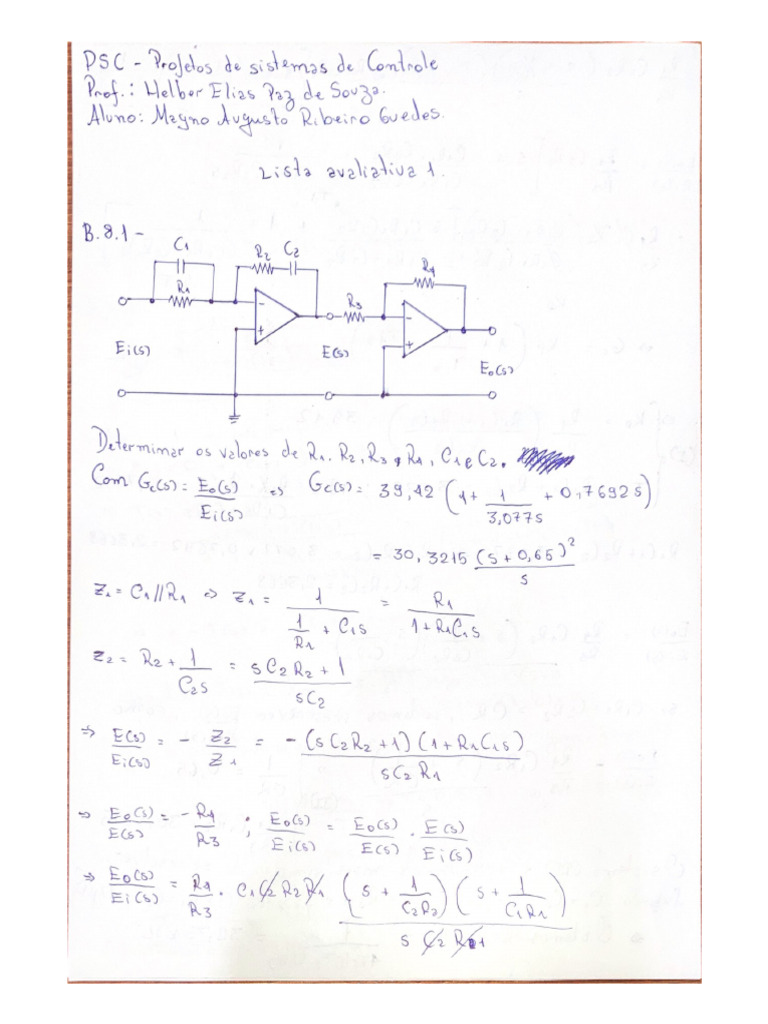 PSC - Projetos de sistemas de Controle
Prof.: Helber Elias Paz de Souza.
Aluno: Magno Augusto Ribeiro Guedes.
Lista avaliativa 1.
B.8.1 -
C1
R1
R2 C2
R3
R4
Ei(s)
E(s)
Eo(s)
Determinar os valores de R1, R2, R3, R4, C1 e C2.
Com Gc(s) = Eo(s)/Ei(s) => Gc(s) = 39,42 (1 + 1/3,077s + 0,7692s)
= 30,3215 (s + 0,65)²/s
Z1 = C1//R1 => Z1 = 1/(1/R1 + C1s) = R1/(1 + R1C1s)
Z2 = R2 + 1/C2s = (sC2R2 + 1)/sC2
=> E(s)/Ei(s) = - Z2/Z1 = -(sC2R2 + 1)(1 + R1C1s)/sC2R1
=> Eo(s)/E(s) = - R4/R3 ; Eo(s)/Ei(s) = Eo(s)/E(s) . E(s)/Ei(s)
=> Eo(s)/Ei(s) = R4/R3 . C1C2R2R1 (s + 1/C2R2)(s + 1/C1R1)/s C2 R1